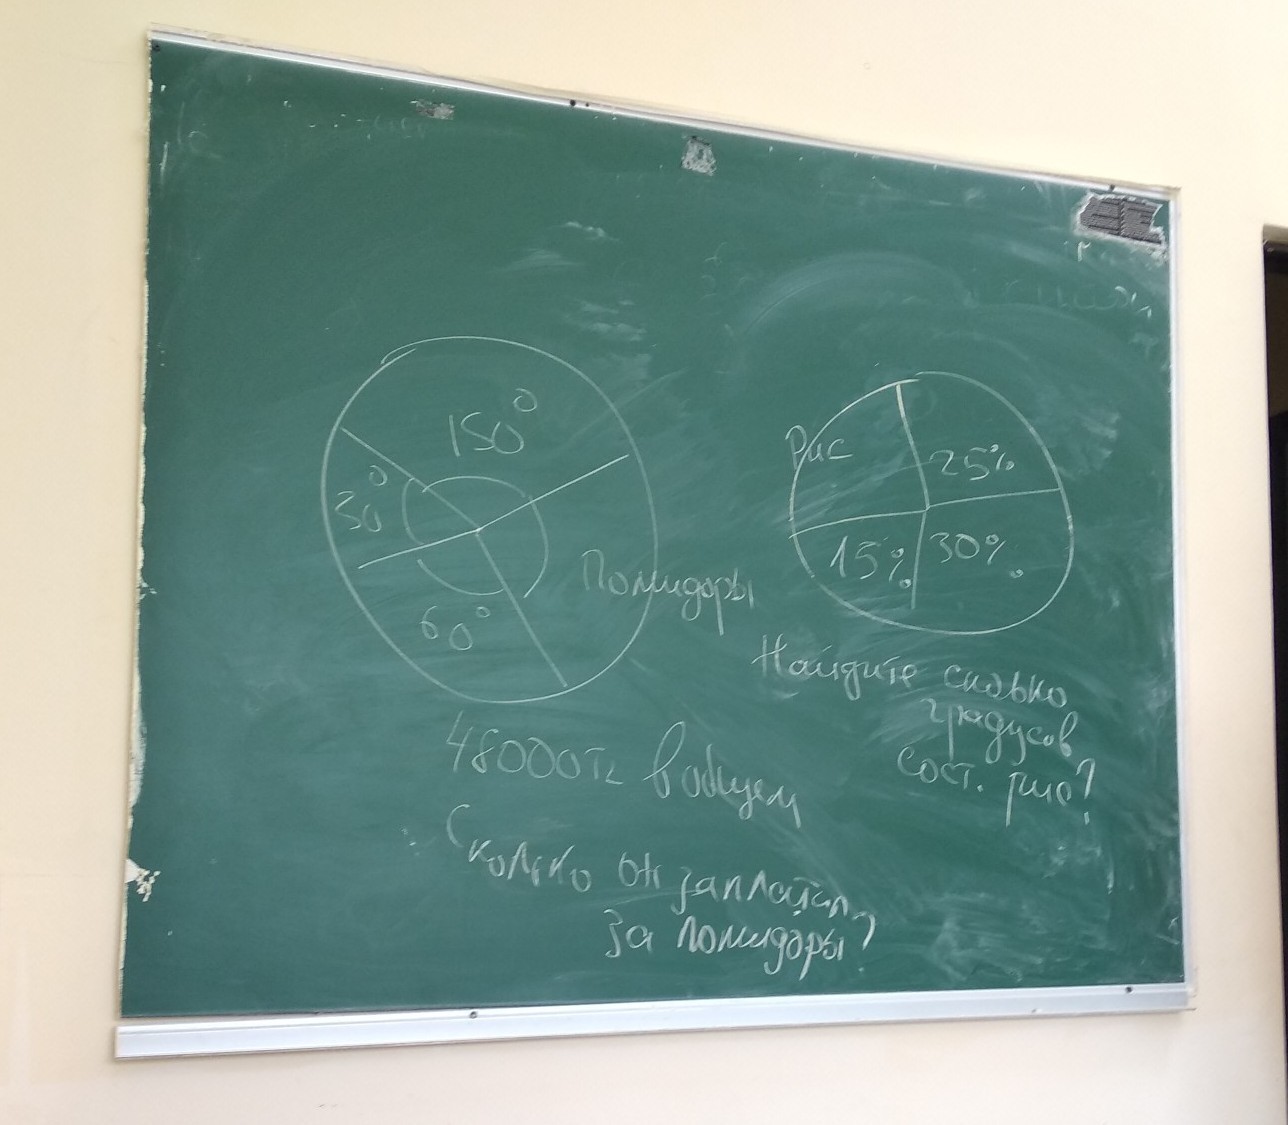 150°
30°
60°
Помидоры
48000тг в общем
Сколько он заплатил
за помидоры?
Рис
25%
15%
30%
Найдите сколько
градусов
сост. рис?